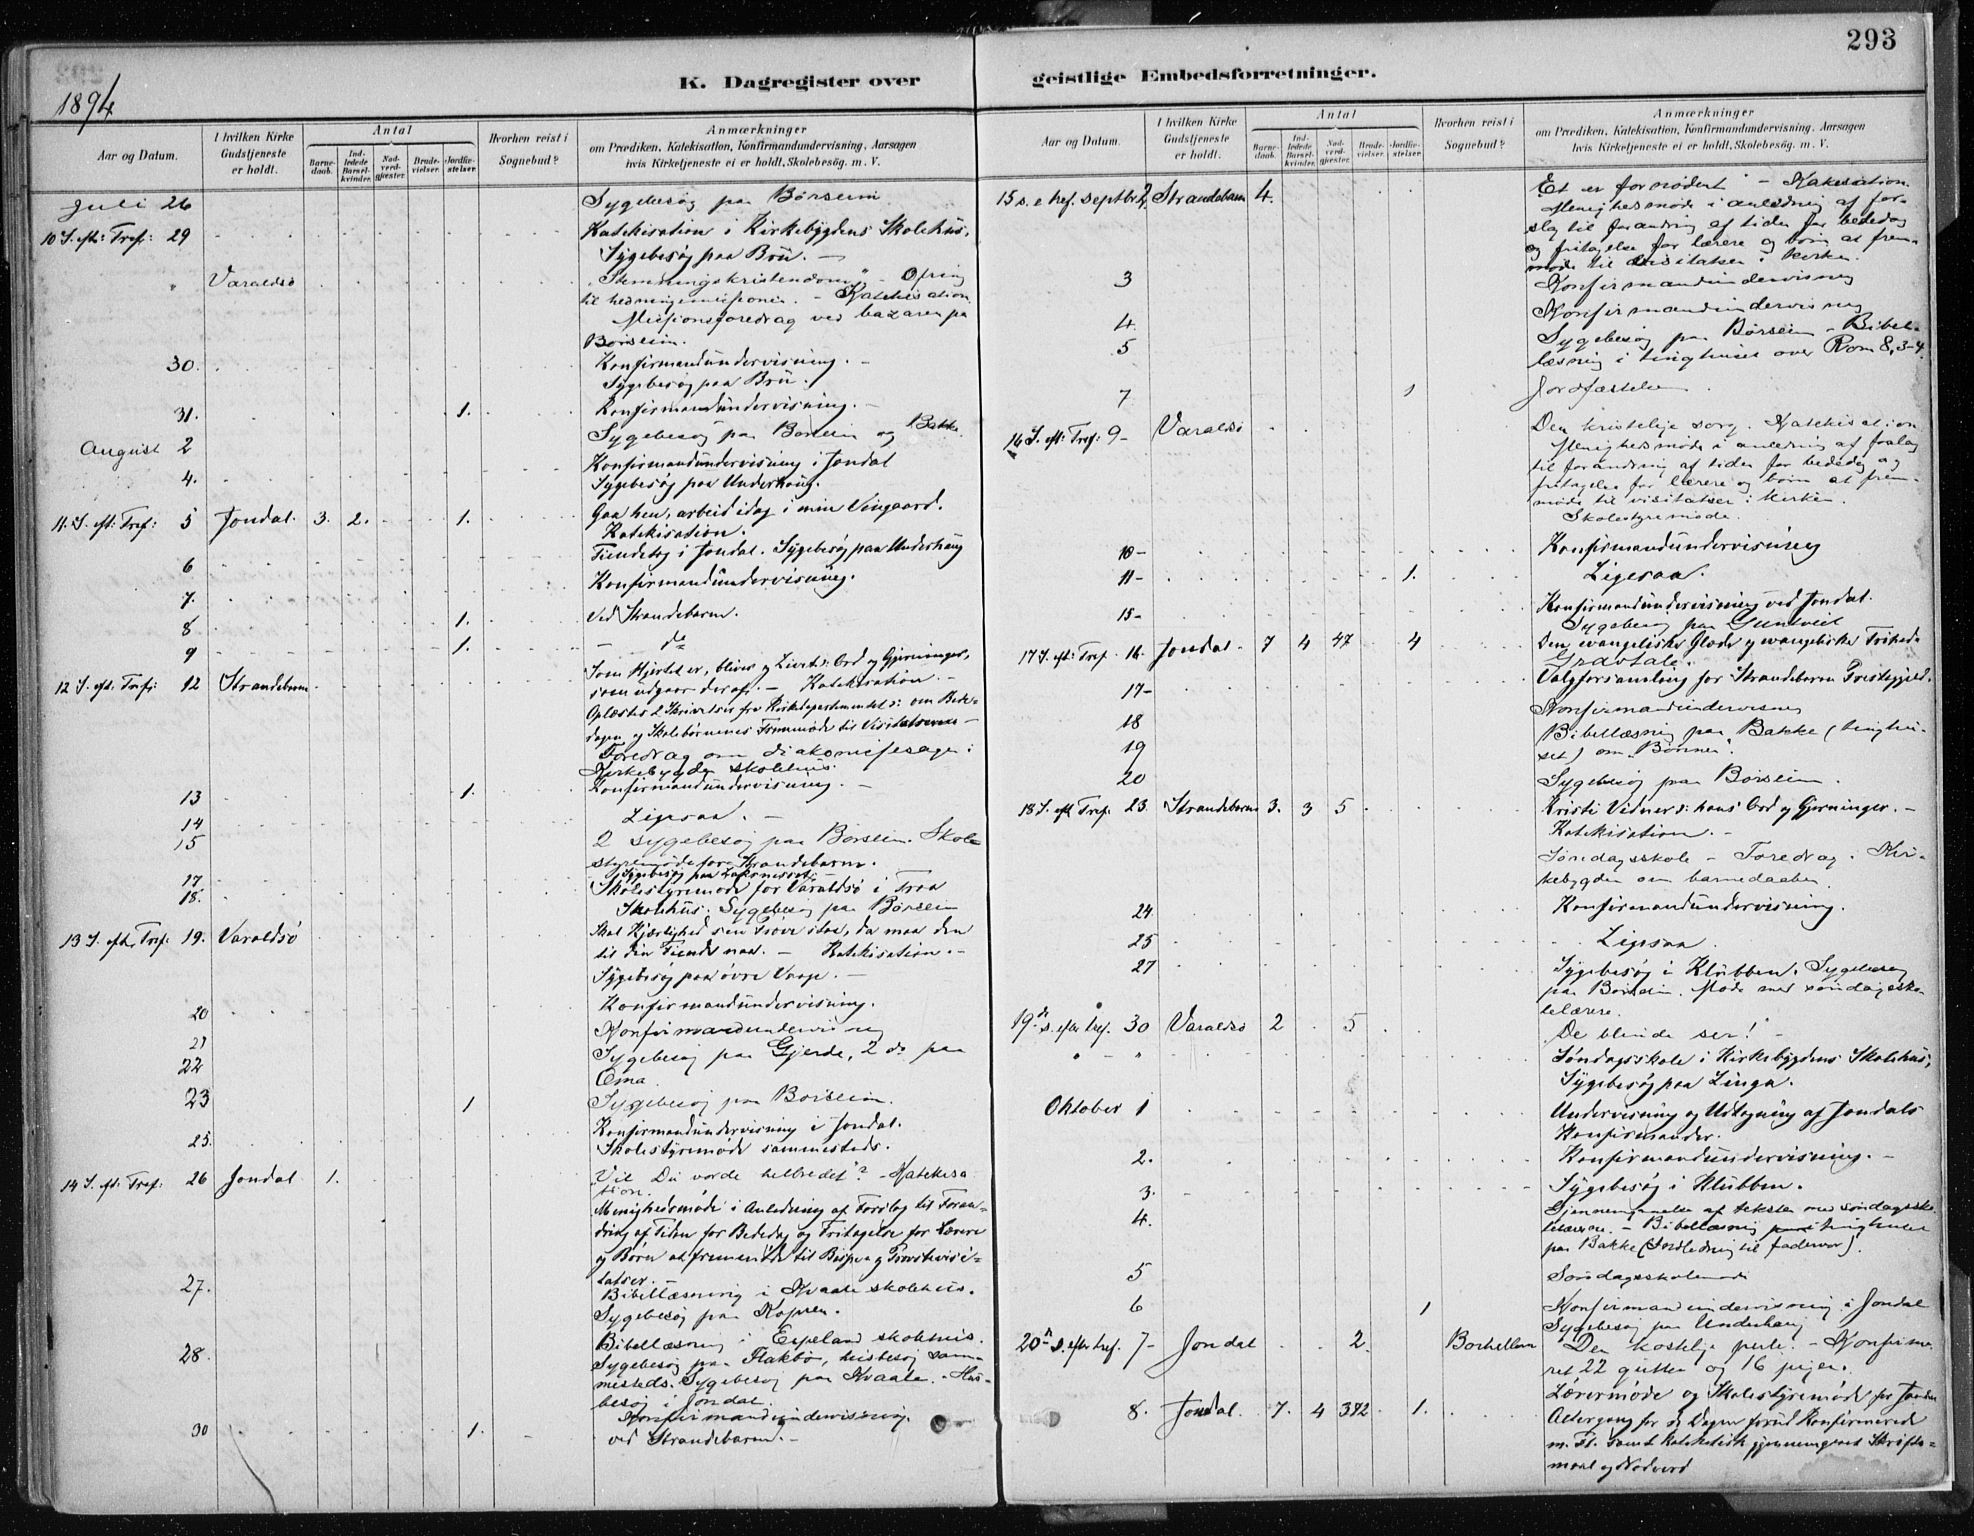 293
1894
K. Dagregister over
geistlige Embedsforretninger.
Aar og Datum.
I hvilken Kirke Gudstjeneste er holdt.
Antal
Barne-daab.
Ind-ledede Barsel-kvinder.
Nad-verd-gjæster.
Brude-vielser.
Jordfæ-stelser.
Hvorhen reist i Sognebud?
Anmærkninger
om Prædiken, Katekisation, Konfirmandundervisning, Aarsagen
hvis Kirketjeneste ei er holdt, Skolebesög. m. V.
Juli 26 Sygebesøg paa Børsein
10 S. eft: Tref: 29 Katekisation i Kirkebygdens Skolehus.
Sygebesøg paa Brü. —
" Varaldsö "Stemningskristendom" - Ofring
til hedningemissionen. - Katekisation.
Missionsforedrag ved bazaren pa
Børsein.
30. Konfirmandundervisning. -
Sygebesøg paa Brü.
31. 1. Konfirmandundervisning. -
August 2 Sygebesøg paa Børsein og Bakke.
4. Konfirmandundervisning i Jondal
Sygebesøg paa Underhaug.
11. S. eft: Tref: 5 Jondal. 3. 2. 1. Gaa hen, arbeid idag i min Vingaard.
Katekisation.
6 Tiendetog i Jondal. Sygebesøg paa Underhaug
7. Konfirmandundervisning.
8 1. ved Strandebarm.
9 1. — do
12 S. eft. Tref: 12 Strandebarm Som Hjertet er, bliver og Livet: Ord og Gjerninger,
som udgaar deraf. — Katekisation. —
Oplæstes 2 Skrivelser fra Kirkedepartementet: om Bede-
dagen og Skolebørnenes Fremmøde til Visitatserne —
Foredrag om diakonissesagen i
Kirkebygden skolehus.
13 1. Konfirmandundervisning. —
14 Ligesaa. —
15 2 sygebesøg paa Børsein. Skole
styremøde for Strandebarm.
17 Sygebesøg paa
18. Skolestyremøde for Varaldsö i
Skolehus. Sygebesøg paa Børsein
13 S. eft. Tref: 19. Varaldsö Skal Kjærlighed sin Prøve staa, da maa den
til din Fiende naa. — Katekisation. -
Sygebesøg paa øvre Vaage. —
20 Konfirmandundervisning.
21 Konfirmandundervisning
22 Sygebesøg paa Gjerde, 2 do paa
Oma.
23 1 Sygebesøg paa Børsein.
25. Konfirmandundervisning i Jondal.
Skolestyremøde sammesteds.
14 S. eft: Tref: 26 Jondal 1. "Vil Du vorde helbredet"? - Katekisa
tion.
Menighedsmøde i Anledning af Forslag til Foran-
dring af Tiden for Bededag og Fritagelse for Lærere
og Børn at fremmøde til Bispe og Provstevisi-
tatser. —
27. Bibellæsning i Kvaale skolehus.
Sygebesøg paa
28. Bibellæsning i Espeland skolehus.
Sygebesøg paa Flakbø, husbesøg sam-
mesteds. Sygebesøg paa Kvaale. - Hus-
besøg i Jondal.
30 1. Konfirmandundervisning
ved Strandebarm. —
Aar og Datum.
I hvilken Kirke Gudstjeneste er holdt.
Antal
Barne-daab.
Ind-ledede Barsel-kvinder.
Nad-verd-gjæster.
Brude-vielser.
Jordfæ-stelser.
Hvorhen reist i Sognebud?
Anmærkninger
om Prædiken, Katekisation, Konfirmandundervisning, Aarsagen
hvis Kirketjeneste ei er holdt, Skolebesög. m. V.
15 s. e tref. septbr 2. Strandebarm 4. "Et er fornødent" - Katekisation
Menighedsmøde i anledning af for-
slag til forandring af tiden for bededag
og fritagelse for lærere og børn at frem-
møde til visitatser i kirken.
3 Konfirmandundervisning
4. Konfirmandundervisning
5 Sygebesøg paa Børsein - Bibel-
læsning i tinghuset over Rom 8, 3-4.
7 1 Jordfæstelse
16 S. eft: Tref: 9- Varaldsö Den kristelige sorg. Katekisation
Menighedsmøde i anledning af forslag
til forandring af tiden for bededag og
fritagelse for lærere og børn at frem-
møde til visitatser i kirken.
Skolestyremøde.
10- Konfirmandundervisning
11- 1. Ligesaa.
15- Konfirmandundervisning ved Jondal.
Sygebesøg paa
17 S. eft: Tref. 16. Jondal. 7 4 47 4 Den evangeliske Glæde og evangeliske Frihed.
Gravtale.
17- Valgforsamling for Strandebarm Prestegjeld.
18 Konfirmandundervisning
19 Bibellæsning paa Bakke (tinghu-
set) om "Bønnen".
20 Sygebesøg paa Børsein.
18 S. eft Tref. 23. Strandebarm 3. 3 5 Kristi Vidner: hans Ord og Gjerninger. —
Katekisation. —
Søndagsskole - Foredrag i Kir-
kebygden om barnedaaben.
24 Konfirmandundervisning.
25 Ligesaa.
27 Sygebesøg i Klubben. Sygebesøg
paa Børsein. Møde med søndagssko-
lelærere.
19de s. efter tref. 30 Varaldsö 2 5 "De blinde ser!" -
" - " Søndagsskole i Kirkebygdens Skolehus,
Sygebesøg paa Linga.
Oktober 1 Undervisning og Udtagning af Jondals
Konfirmander.
2. Konfirmandundervisning. —
3. Sygebesøg i Klubben.
4. Gjennemgaaelse af teksten med søndagssko-
lelærerne. - Bibellæsning i tinghuset
paa Bakke (Indledning til fadervor).
5 Søndagsskolemøde
6 1 Konfirmandundervisning i Jondal
Sygebesøg paa Underhaug
20de s. efter tref. 7- Jondal 2. Den kostelige perle. - Konfirme-
ret 22 gutter og 16 piger.
8. Jondal. 7. 4 392 1. Lærermøde og Skolestyremøde for Jondal
Altergang for de Dagen forud Konfirmerede
m. Fl. samt katekistisk gjennemgaaet Skrifte-
maal og Nadverd